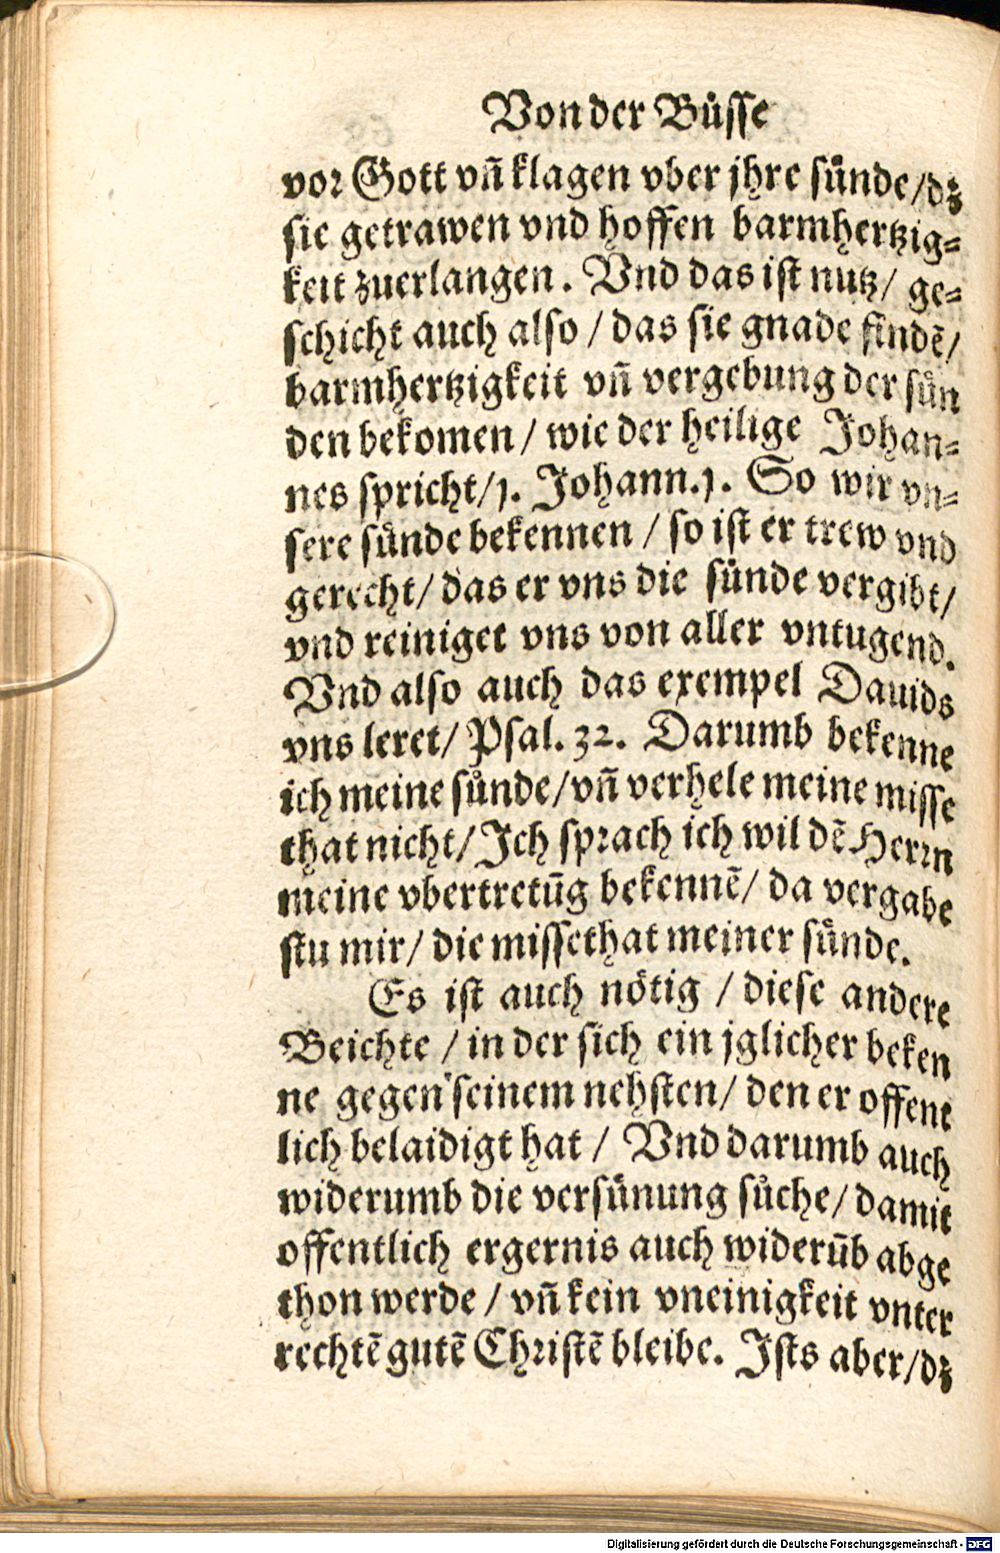 Von der Bůsse
vor Gott vñ klagen vber jhre sůnde / dz
sie getrawen vnd hoffen barmhertzig=
keit zuerlangen. Vnd das ist nutz / ge=
schicht auch also / das sie gnade findē /
barmhertzigkeit vñ vergebung der sůn
den bekomen / wie der heilige Johan=
nes spricht / 1. Johann. 1. So wir vn=
sere sůnde bekennen / so ist er trew vnd
gerecht / das er vns die sůnde vergibt /
vnd reiniget vns von aller vntugend.
Vnd also auch das exempel Dauids
vns leret / Psal. 32. Darumb bekenne
ich meine sůnde / vñ verhele meine misse
that nicht / Ich sprach ich wil dē Herrn
meine vbertretūg bekennē / da vergabe
stu mir / die missethat meiner sůnde.
Es ist auch nötig / diese andere
Beichte / in der sich ein jglicher beken
ne gegen seinem nehsten / den er offent
lich belaidigt hat / Vnd darumb auch
widerumb die versůnung sůche / damit
offentlich ergernis auch widerūb abge
thon werde / vñ kein vneinigkeit vnter
rechtē gutē Christē bleibe. Ists aber / dz
Digitalisierung gefördert durch die Deutsche Forschungsgemeinschaft - DFG